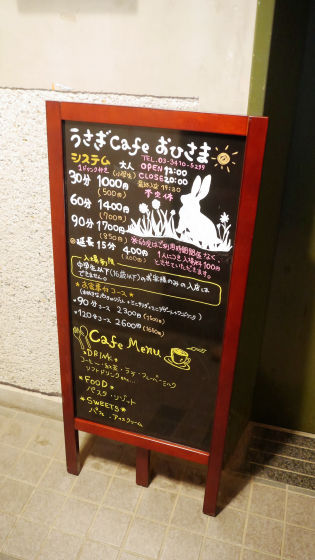 うさぎCafe おひさま
TEL.03-3470-5299
システム 大人 OPEN 12:00
1ドリンク付き (小学生) CLOSE 20:00
30分 1000円 最終入店 19:30
(500円) 不定休
60分 1400円
(700円)
90分 1700円
(850円)
延長 15分 400円
1人につき入場料100円
とさせていただきます。
入場制限
中学生以下(16歳以下)のお客様のみの入店は
できません。
★お食事付コース★
★90分コース 2300円
★120分コース 2600円
Cafe Menu
★DRINK★
コーヒー・紅茶・ラテ・フレーバーミルク
ソフトドリンク etc...
★FOOD★
パスタ・リゾット
★SWEETS★
パフェ・アイスクリーム